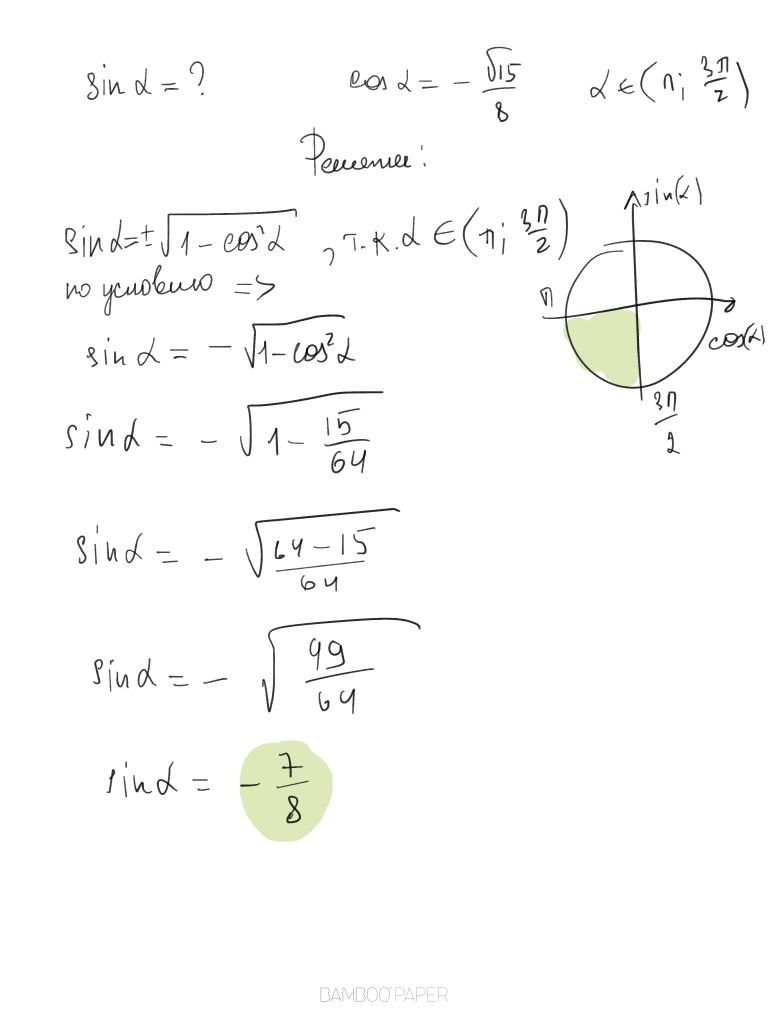 sin α = ? cos α = - √15/8 α ∈ (π; 3π/2)
Решение:
sin α = ± √(1 - cos²α) , т.к. α ∈ (π; 3π/2)
по условию =>
sin α = - √(1 - cos²α)
sin α = - √(1 - 15/64)
sin α = - √((64 - 15)/64)
sin α = - √(49/64)
sin α = - 7/8
sin(α)
π
cos(α)
3π/2
BAMBOO PAPER